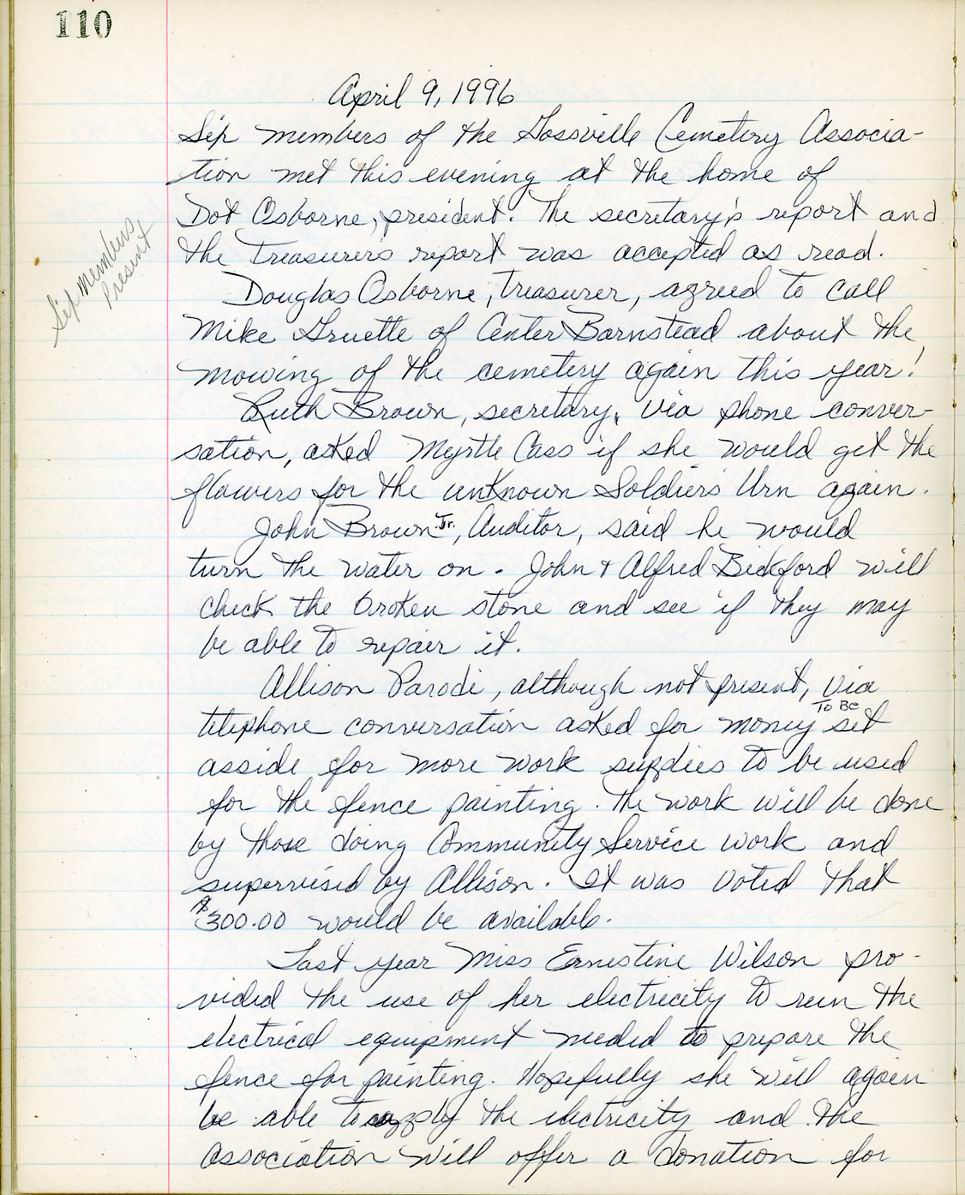 110
April 9, 1996
Six members of the Gossville Cemetery Associa-
tion met this evening at the home of
Dot Osborne, president. The secretary's report and
the Treasurer's report was accepted as read.
Six members
present
Douglas Osborne, Treasurer, agreed to call
Mike Gruette of Center Barnstead about the
mowing of the cemetery again this year!
Ruth Brown, secretary, via phone conver-
sation, asked Myrtle Cass if she would get the
flowers for the unknown Soldiers Urn again.
John Brown Jr., Auditor, said he would
turn the water on. John & Alfred Bickford will
check the broken stone and see if they may
be able to repair it.
Allison Parodi, although not present, via
telephone conversation asked for money To Be set
asside for more work supplies to be used
for the fence painting. The work will be done
by those doing Community Service work and
supervised by Allison. It was voted that
$300.00 would be available.
Last year Miss Ernestine Wilson pro-
vided the use of her electricity to run the
electrical equipment needed to prepare the
fence for painting. Hopefully she will again
be able to supply the electricity and the
association will offer a donation for